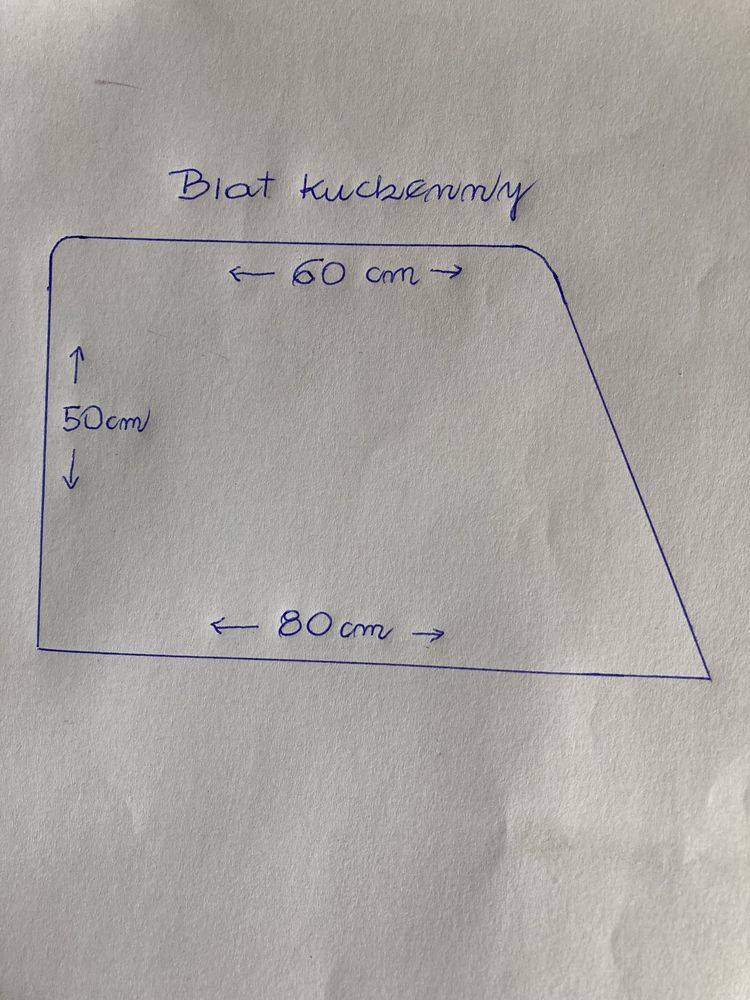 Blat kuchenny
← 60 cm →
↑
50cm
↓
← 80cm →